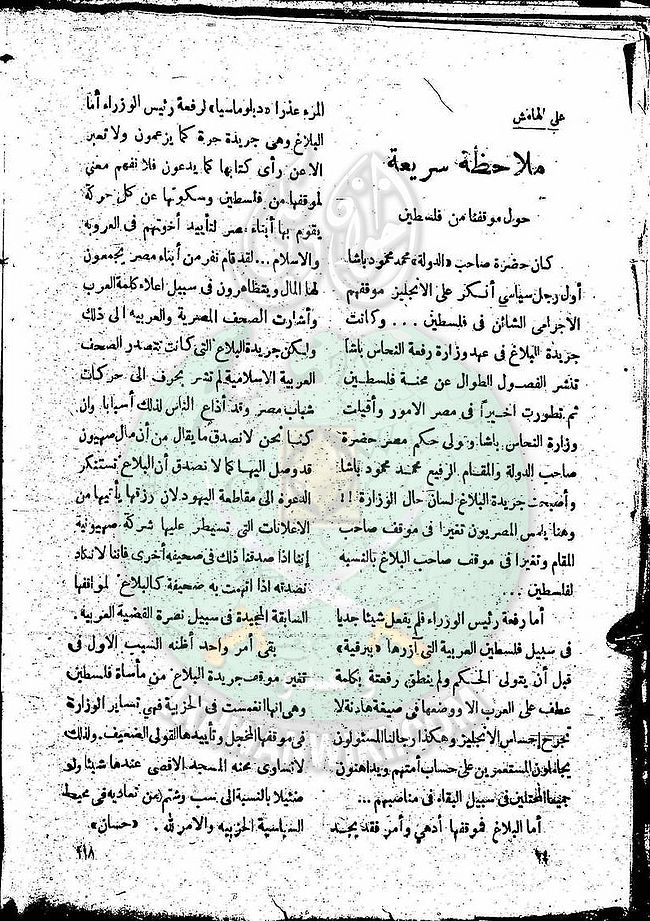 على الهامش
ملاحظة سريعة
حول موقفنا من فلسطين
كان حضرة صاحب «الدولة» محمد محمود باشا
أول رجل سياسي أنكر على الانجليز موقفهم
الاجرامى الشائن فى فلسطين ... وكانت
جريدة البلاغ فى عهد وزارة رفعة النحاس باشا
تنشر الفصول الطوال عن محنة فلسطين
ثم تطورت اخيراً فى مصر الامور وأقيلت
وزارة النحاس باشا وتولى حكم مصر حضرة
صاحب الدولة والمقام الرفيع محمد محمود باشا
وأصبحت جريدة البلاغ لسان حال الوزارة !!
وهنا يلمس المصريون تغيرا فى موقف صاحب
المقام وتغيرا فى موقف صاحب البلاغ بالنسبه
لفلسطين ...
أما رفعة رئيس الوزراء فلم يفعل شيئا جديا
فى سبيل فلسطين العربية التى آزرها «ببرقية»
قبل أن يتولى الحكم ولم ينطق رفعته بكلمة
عطف على العرب الا ووضعها فى صيغة هادئة لا
تجرح إحساس الانجليز وهكذا رجالنا المسئولون
يجاملون المستعمرين على حساب أمتهم ويداهنون
المحتلين فى سبيل البقاء فى مناصبهم ...
أما البلاغ فموقفها أدهى وأمر فقد يجد
٢٤
المرء عذرا «دبلوماسيا» لرفعة رئيس الوزراء أما
البلاغ وهى جريدة حرة كما يزعمون ولا تعبر
الا عن رأى كتابها كما يدعون فلا نفهم معنى
لموقفها من فلسطين وسكوتها عن كل حركة
يقوم بها أبناء مصر لتأييد أخوتهم فى العروبه
والاسلام ... لقد قام نفر من أبناء مصر يجمعون
لها المال ويتظاهرون فى سبيل اعلاء كلمة العرب
وأشارت الصحف المصرية والعربيه الى ذلك
ولكن جريدة البلاغ التى كانت تتصدر الصحف
العربية الاسلامية لم تشر بحرف الى حركات
شباب مصر وقد أذاع الناس لذلك أسبابا وان
كنا نحن لا نصدق ما يقال من أن مال صهيون
قد وصل اليها كما لا نصدق أن البلاغ تستنكر
الدعوه الى مقاطعة اليهود لان رزقها يأتيها من
الاعلانات التى تسيطر عليها شركة صهيونية
إننا اذا صدقنا ذلك فى صحيفه أخرى فاننا لا نكاد
نصدقه اذا اتهمت به صحيفة كالبلاغ لمواقفها
السابقة المجيدة فى سبيل نصرة القضية العربيه .
بقى أمر واحد أظنه السبب الاول فى
تغير موقف جريدة البلاغ من مأساة فلسطين
وهى انها انغمست فى الحزبية فهى تساير الوزارة
فى موقفها المخجل وتأييدها القولى الضعيف. ولذلك
لا تساوى محنه المسجد الاقصى عندها شيئا ولو
ضئيلا بالنسبة الى سب وشتم من تعاديه فى محيط
السياسية الحزبيه والامر لله . «حسان»
٤١٨